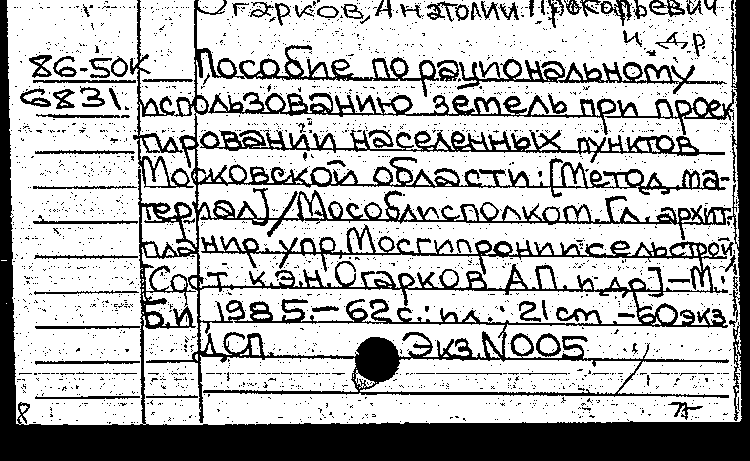 Огарков, Анатолий Прокопьевич
и др
86-50К Пособие по рациональному
6831. использованию земель при проек
тировании населенных пунктов
Московской области: [Метод. ма-
териал] / Мособлисполком. Гл. архит.-
планир. упр. Мосгипрониисельстрой
[Сост. к.э.н. Огарков А.П. и др]. - М.:
Б.и, 1985. - 62 с.: ил.: 21 cm. - 50 экз.
ДСП. Экз. N005.
8